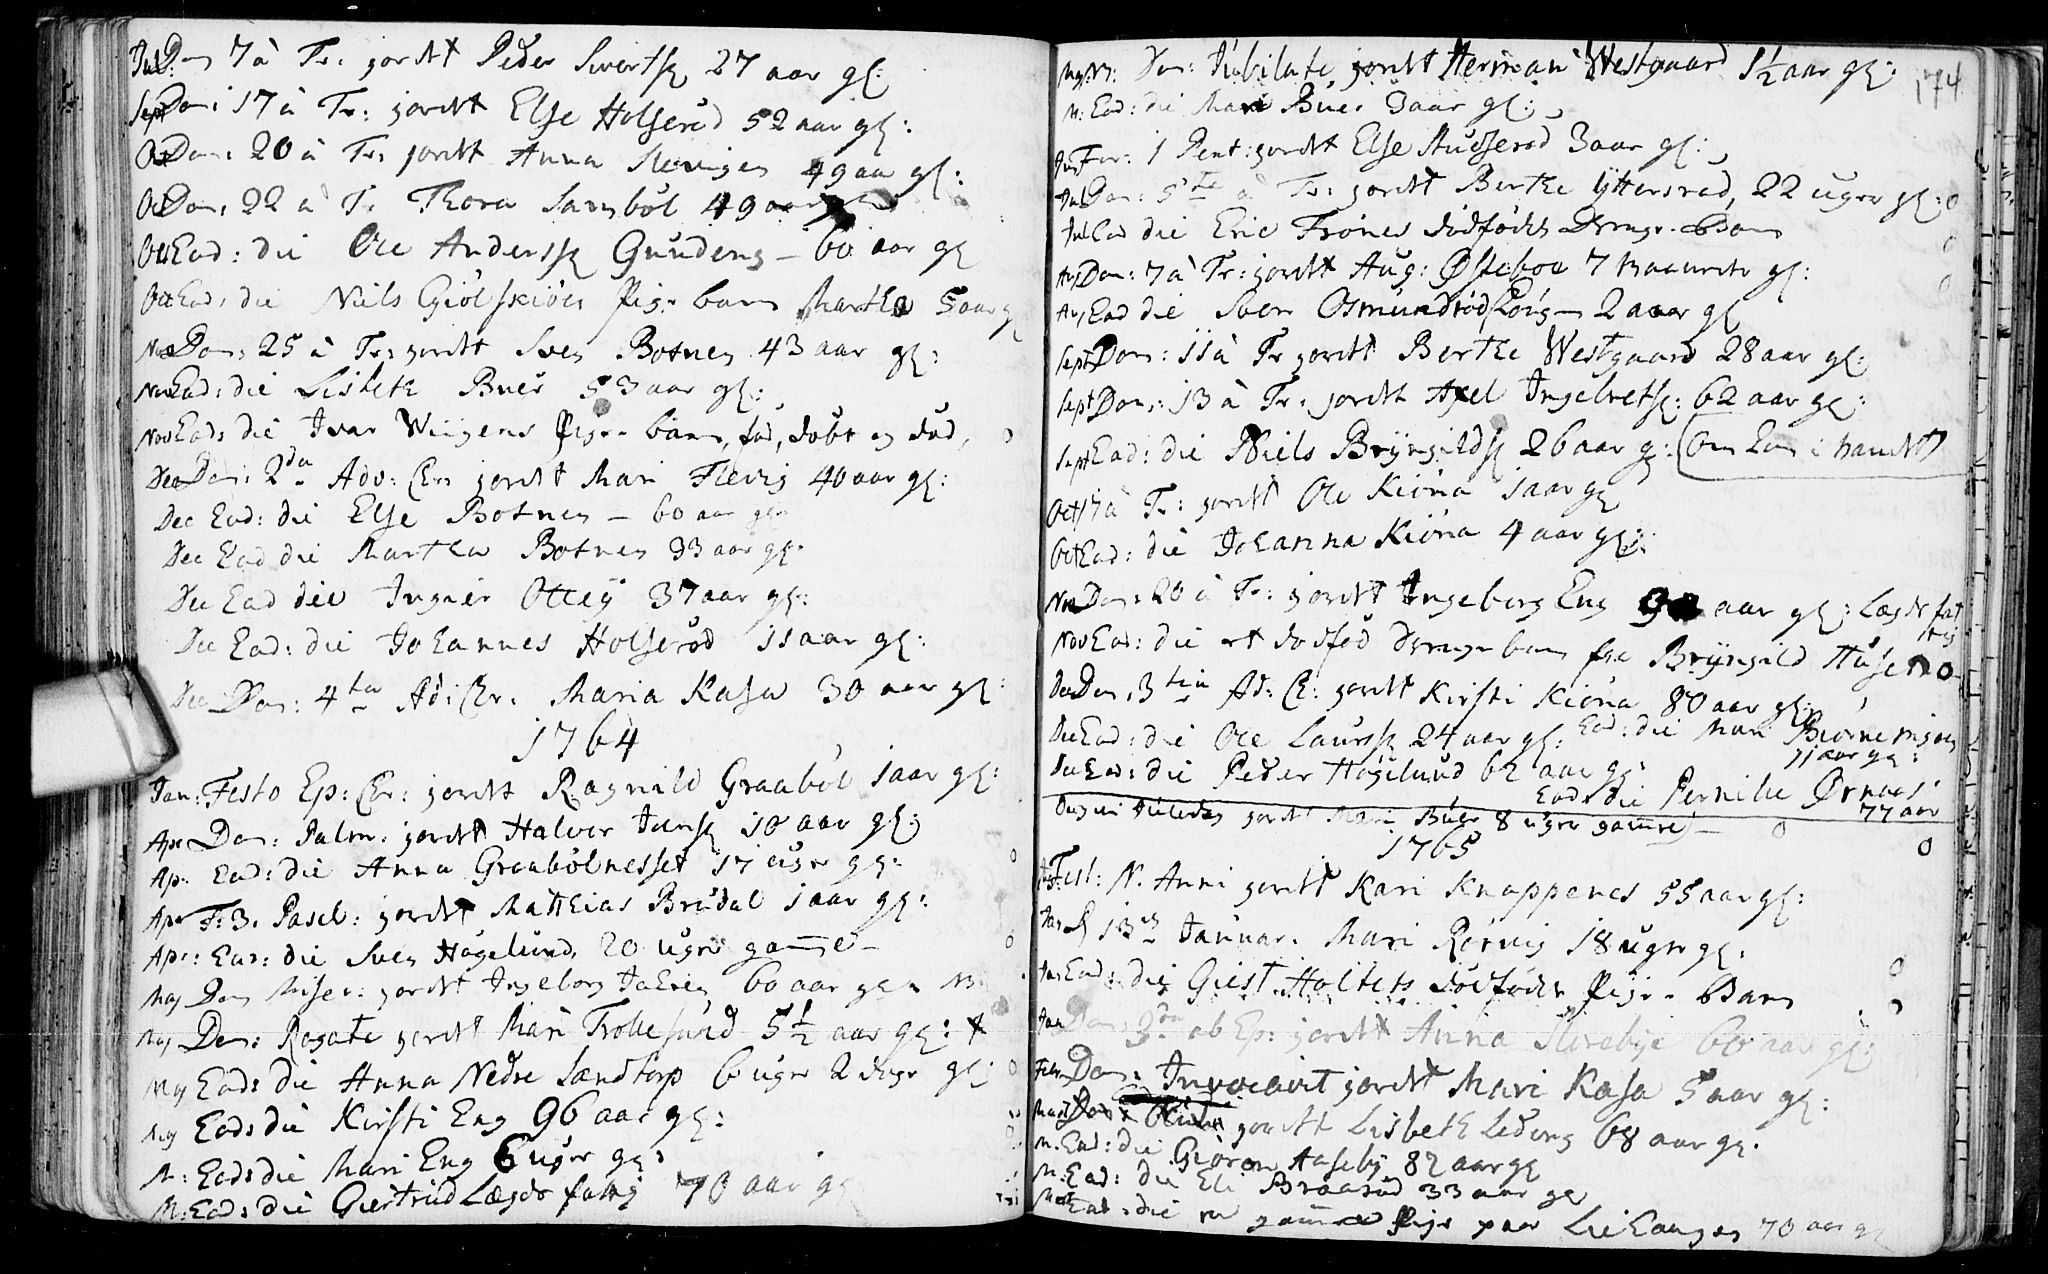 Jul: Dom 7 à Tr: jordet Peder Sivertsø 27 aar gl:
Sept Dom: 17 à Tr: jordet Else Holserød 52 aar gl:
Oct Dom: 20 à Tr: jordet Anna 49 aar gl:
Oct Dom: 22 à Tr Thora Sarsbøl 49 aar
Oct Ead: die Ole Anderssø Guudeng – 60 aar gl
Oct Ead: die Niels Giølskiøers Pige barn Martha 5 aar g
Nov Dom: 25 à Tr: jordet Sven Botnen 43 aar gl:
Nov Ead: die Lisbeth Buer 53 aar gl:
Nov Ead: die Ivar Wiigens Pige barn, fød, døbt og død, 0
Dec Dom: 2da Adv: Chr jordet Mari Flevig 40 aar gl:
Dec Ead: die Else Botnen – 60 aar gl
Dec Ead die Martha Botnen 33 aar gl:
Dec Ead die Ingier Ottey 37 aar gl:
Dec Ead: die Johannes Holserød 11 aar gl:
Dec Dom: 4ta Ad: Chr: Maria Kasa 30 aar gl:
1764
Jan: Festo Ep: Chr: jordet Ragnild Graabøl 1 aar gl:
Apr Dom: Palm: jordet Halvor Jensø 10 aar gl:
Apr Ead: die Anna Graabølnesset 17 uger gl: 0
Apr F: 3. Pasch: jordet Mathias Brudal 1 aar gl:
Apr: Ead: die Sven Høgelund 20 uger gamle – 0
Maj Dom Miser: jordet Ingeborg 60 aar gl
Maj Dom: Rogate jordet Mari Trollesund 5½ aar gl:
Maj Ead: die Anna Nedre Sandtorp 6 uger 2 dage gl: 0
Maj Ead: die Kirsti Eng 96 aar gl:
M: Ead: die Mari Eng 6 uger gl: 0
M: Ead: die Giertrud Lægds fattig 70 aar gl
174
Maj Dom: Jubilate jordet Herman Westgaard 1½ aar gl:
M: Ead: die Mari Buer 3 aar gl:
Jun Fer: 1 Pent: jordet Else Huusserød 3 aar gl:
Jul Dom: 5te à Tr: jordet Berthe Ytterrød, 22 uger gl: 0
Jul Ead die Eric Frønes dødfødde Drenge-Barn 0
Aug Dom: 7 à Tr: jordet Aug: Østeboe 7 Maaneder gl: 0
Aug Ead die Sven Osmundrød 2 aar gl
Sept Dom: 11 à Tr jordet Berthe Westgaard 28 aar gl:
Sept Dom: 13 à Tr: jordet Axel Ingelretsø: 62 aar gl:
Sept Ead: die Niels Bryngildsø 26 aar g:
Oct 17 à Tr: jordet Ole Kiøna 1 aar gl
Oct Ead: die Johanna Kiøna 4 aar gl:
Nov Dom: 20 à Tr: jordet Ingeborg Eng aar gl: Lægds fat
tig
Nov Ead: die et dødfød Drenge barn fra Bryngild Husemo 0
Dec Dom: 3tia Ad: C: jordet Kirsti Kiøna 80 aar gl:
Dec Ead: die Ole Laurssø 24 aar gl: Ead: die Mari Biørneengen
71 aar gl:
Dec Ead: die Peder Høgelund 62 aar gl:
Ead: die Pernille Ørnaes
77 aar
Dagen Juledag jordet Mari Buer 8 uger gamle – 0
1765 0
Jan: Fest: N. Anni jordet Kari Knappenes 55 aar gl:
Jan d 13de Januar: Mari Rørvig 18 uger gl: 0
Jan Ead: die Giest Holtets dødfødde Pige-Barn 0
Jan Dom: 3tia ab Ep: jordet Anna Skrebye 60 aar gl:
Febr Dom: Invocavit jordet Mari Kasa 5 aar gl:
Mart Dom: jordet Lisbeth Ledeng 68 aar gl.
M. Ead: die Giøron Aaseby 82 aar gl
M. Ead: die Eli Braarud 33 aar gl
Mart Ead: die en gammel Pige paa Liehaugen 70 aar gl